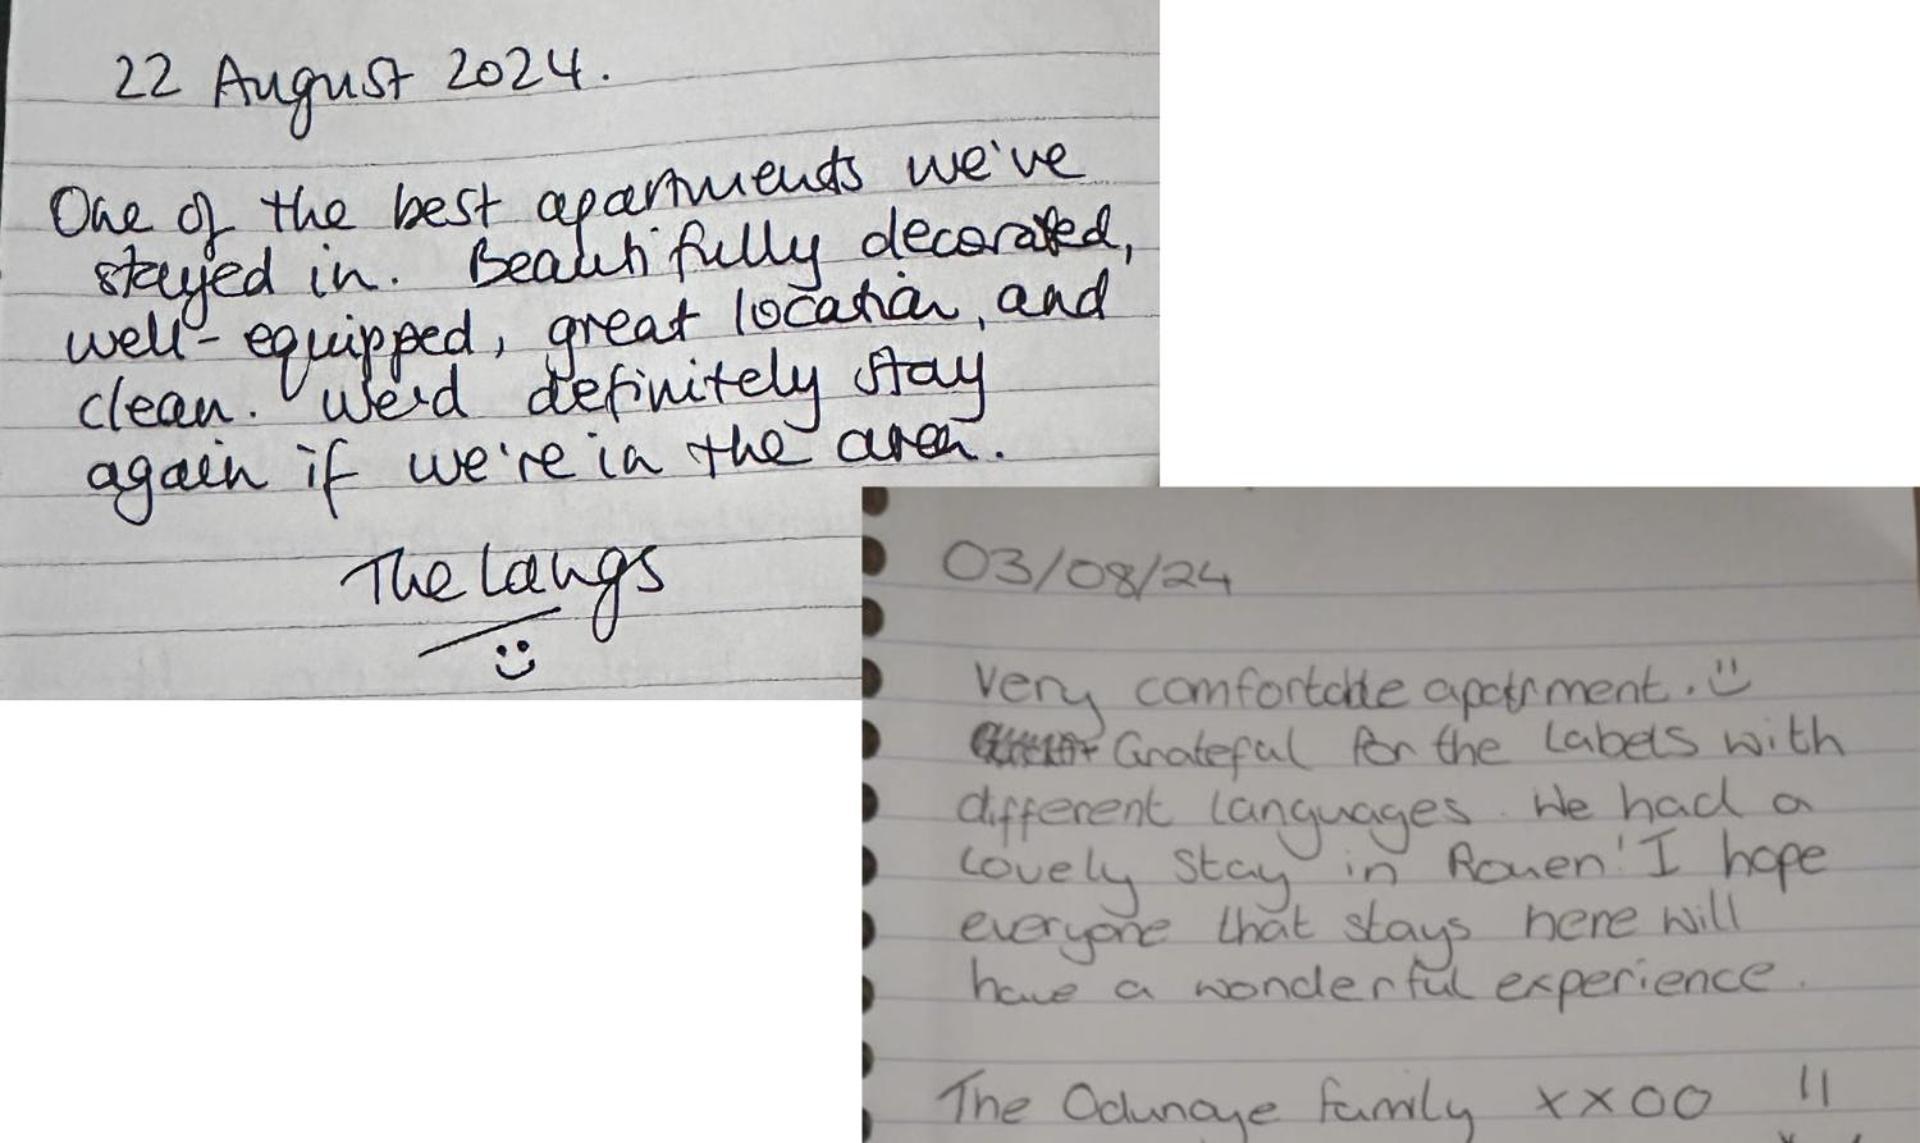 22 August 2024.
One of the best apartments we've
stayed in. Beautifully decorated,
well-equipped, great location, and
clean. We'd definitely stay
again if we're in the area.
The Langs
03/08/24
Very comfortable apartment. :)
Grateful for the labels with
different languages. We had a
lovely stay in Rouen! I hope
everyone that stays here will
have a wonderful experience.
The Odunaye family xxoo